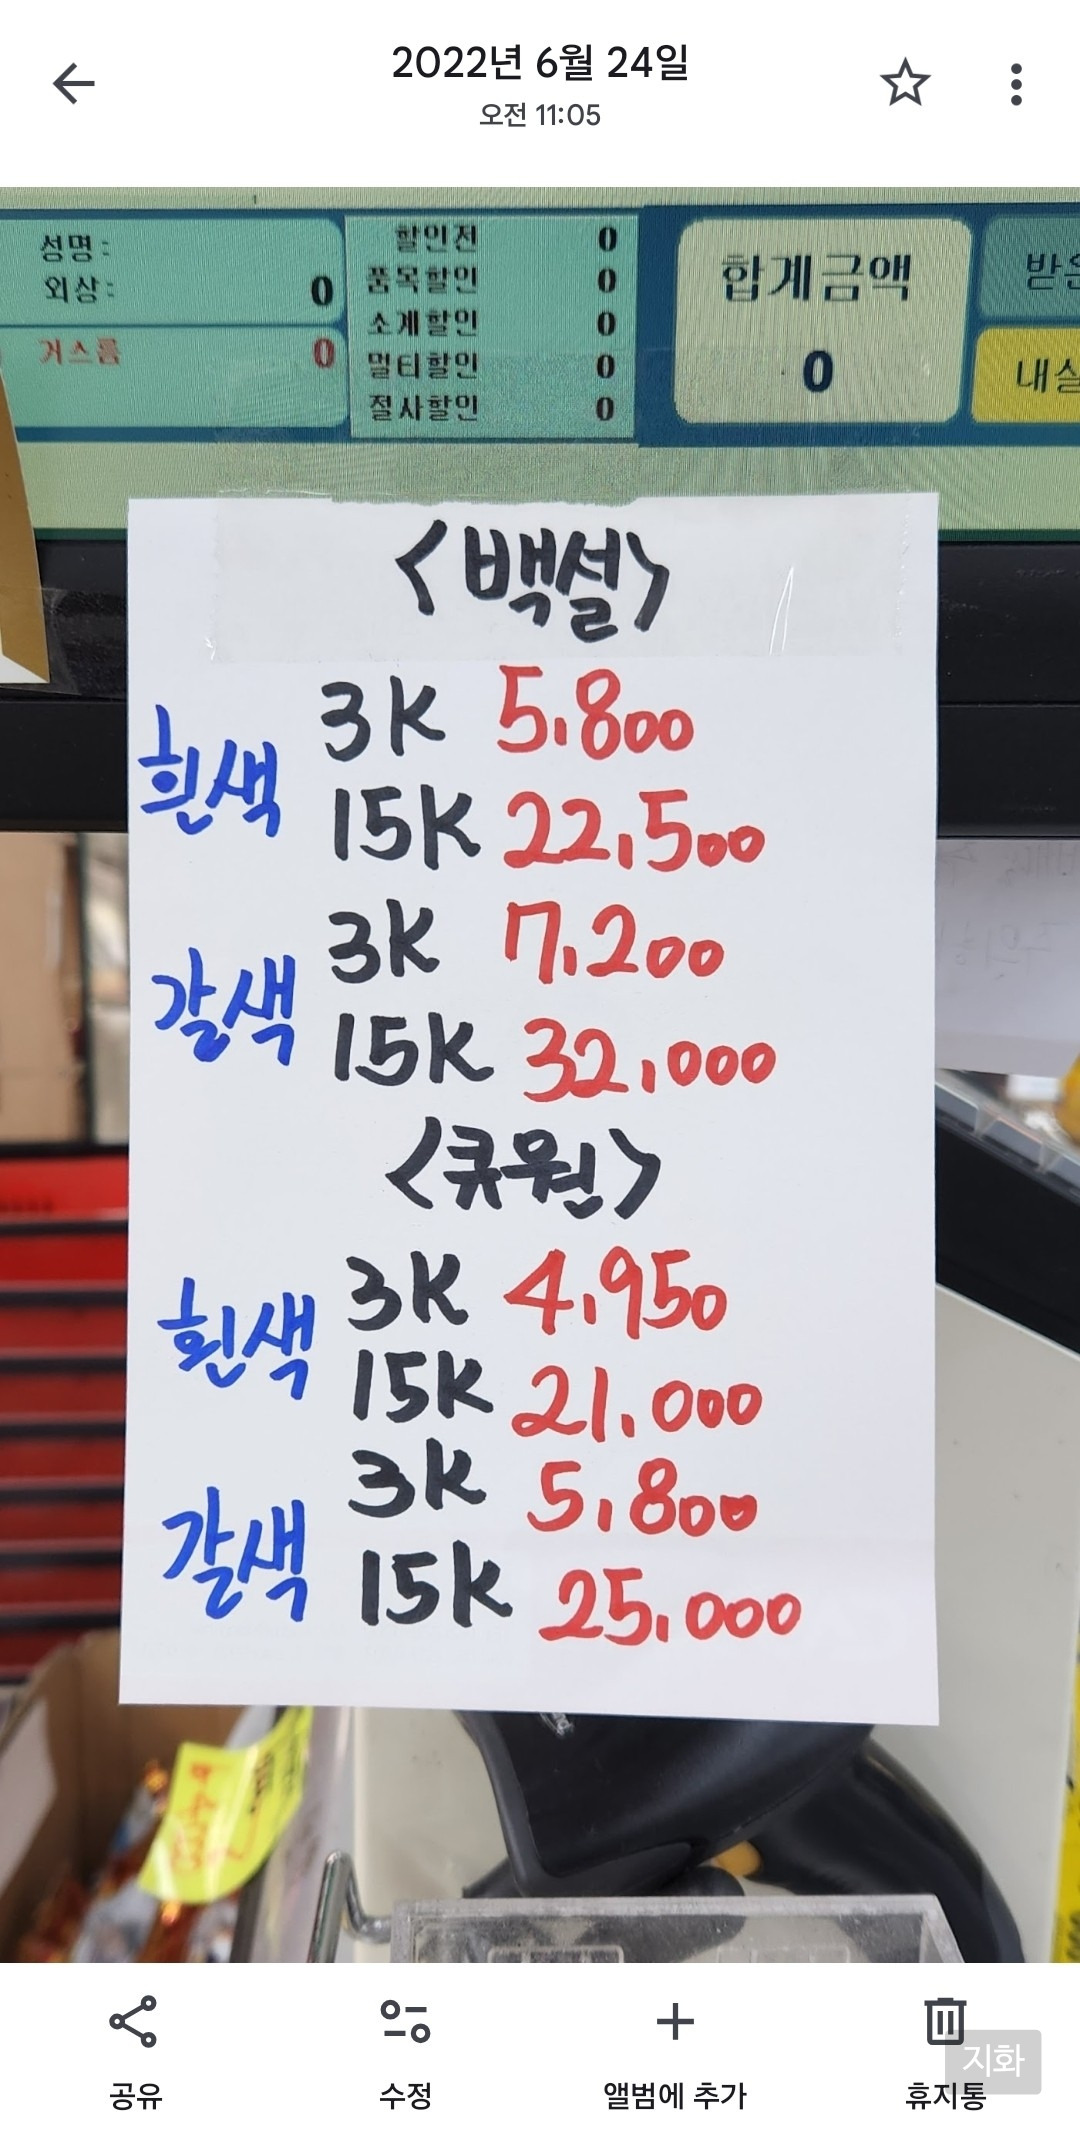 2022년 6월 24일
오전 11:05
성명:
외상: 0
거스름 0
할인전 0
품목할인 0
소계할인 0
멀티할인 0
절사할인 0
합계금액
0
받은
내실
<백설>
흰색 3K 5,800
15K 22,500
갈색 3K 7,200
15K 32,000
<큐원>
흰색 3K 4,950
15K 21,000
갈색 3K 5,800
15K 25,000
공유
수정
앨범에 추가
휴지통
지화